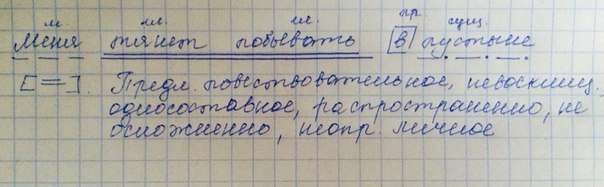 м. гл. гл. пр. сущ.
Меня тянет побывать [в] пустыне
[=]. Предл. повествовательное, невосклиц.
односоставное, распространенно, не
осложненно, неопр. личное